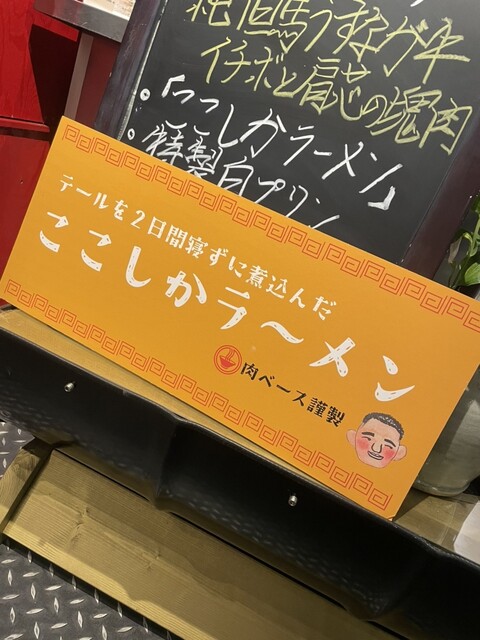 純但馬うまなが牛
イチボと肩芯の塊肉
・「ここしかラーメン」
・特製白プリン
テールを2日間寝ずに煮込んだ
ここしかラ〜メン
肉ベース謹製